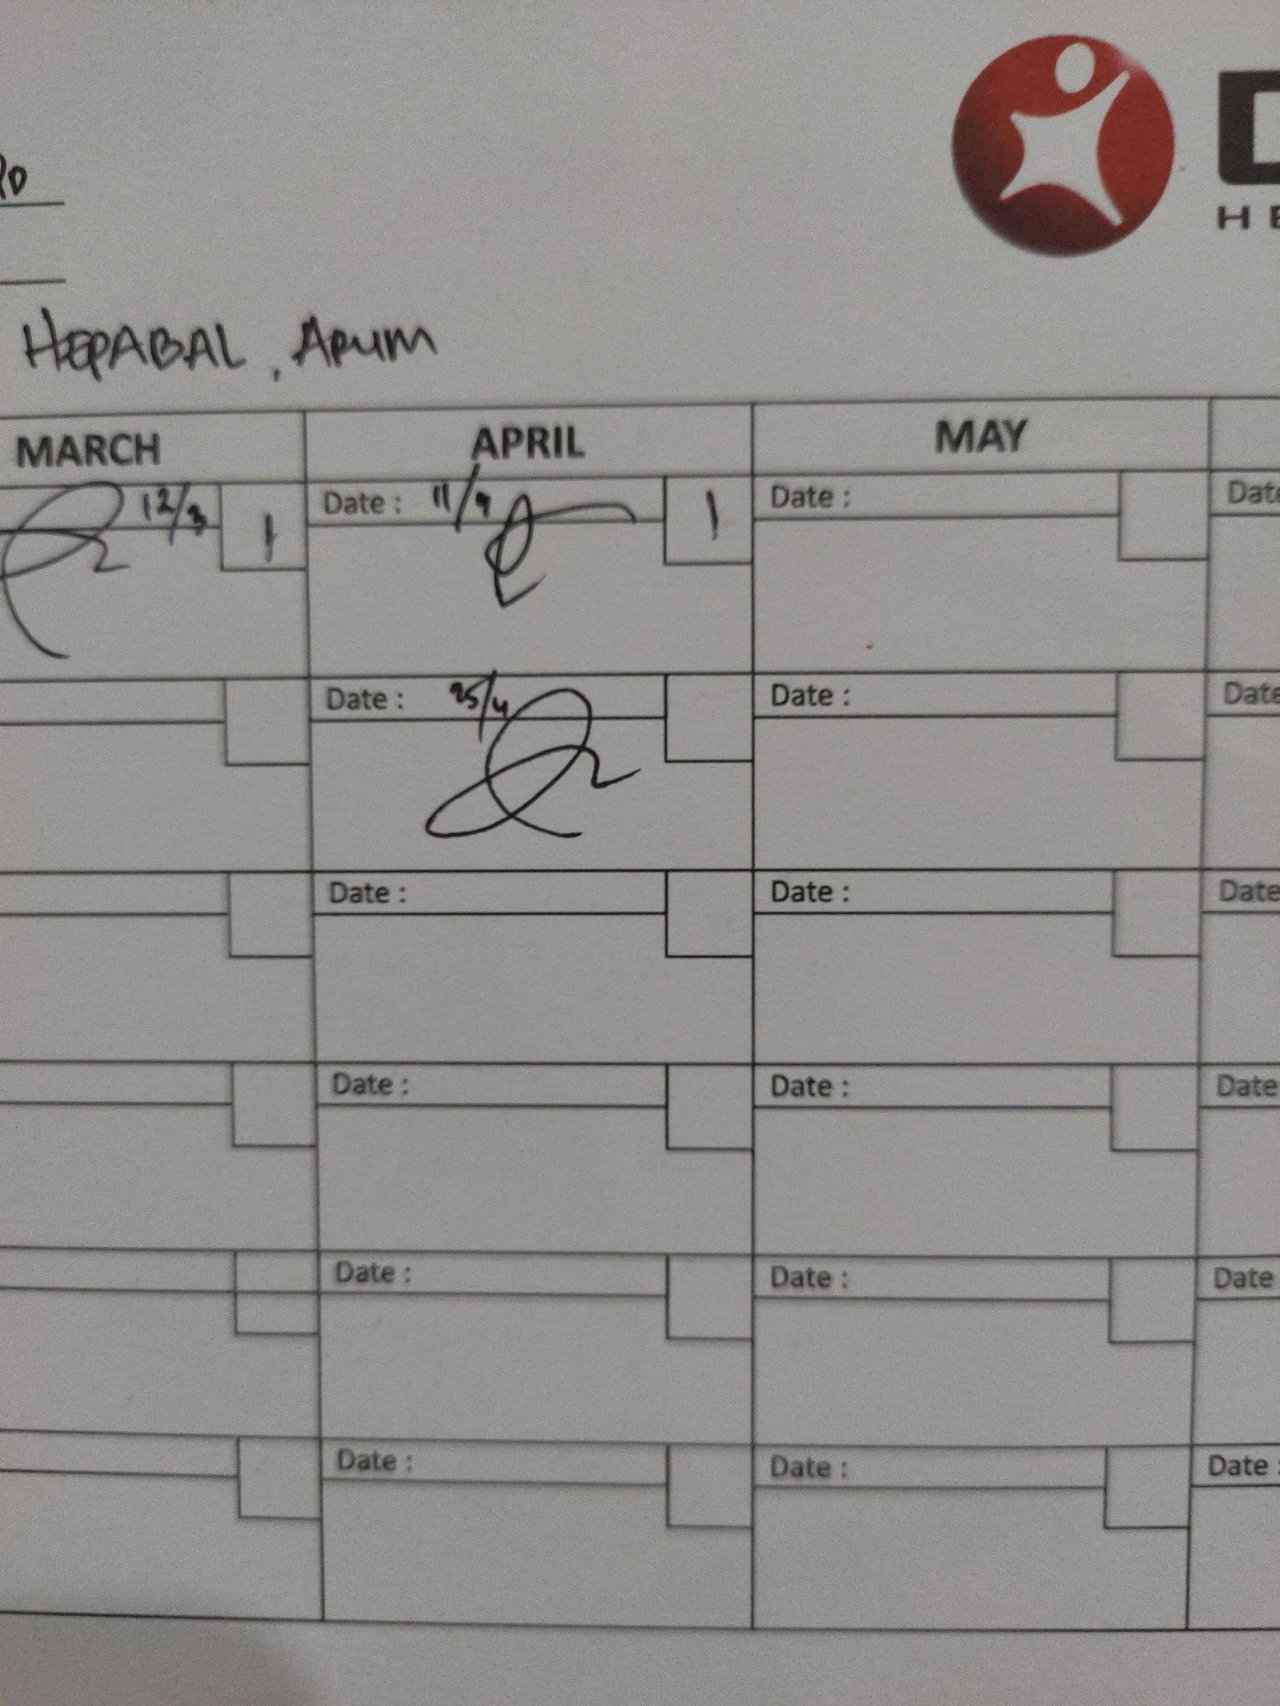 D
HE
HEPABAL, Apum
MARCH APRIL MAY
12/3 1 Date : 11/4 1 Date : Date
Date : 25/4 Date : Date
Date : Date : Date
Date : Date : Date
Date : Date : Date
Date : Date : Date :